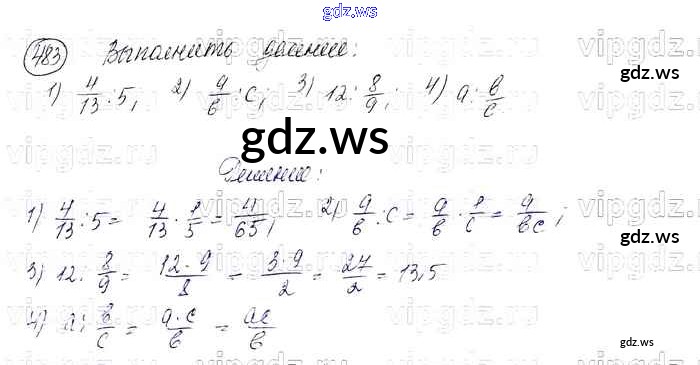 gdz.ws
483 Выполнить деление:
1) 4/13 : 5; 2) a/b : c; 3) 12 : 8/9; 4) a : b/c
gdz.ws
gdz.ws
Решение:
1) 4/13 : 5 = 4/13 · 1/5 = 4/65; 2) a/b : c = a/b · 1/c = a/bc;
gdz.ws
3) 12 : 8/9 = 12·9/8 = 3·9/2 = 27/2 = 13,5
4) a : b/c = a·c/b = ac/b
gdz.ws
vipgdz.ru